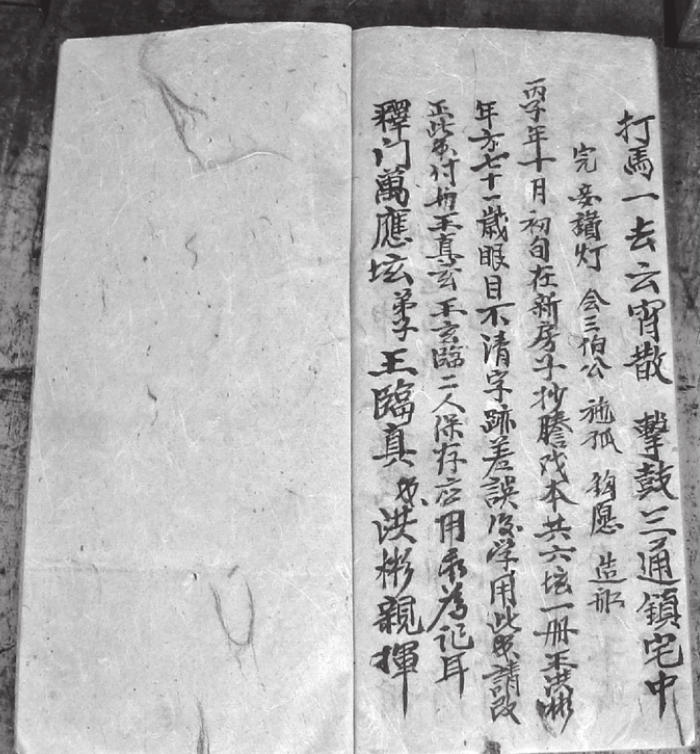 打馬一去云宵散 擊鼓三通鎮宅中
完 妥讚灯 会三伯公 施孤 鈎愿 造船
丙子年十月初旬在新房子抄謄戏本共六坛一册王洪彬
年方七十一歲眼目不清字跡差誤後学用此書請改
正此書付与王真玄王玄臨二人保存应用永為记耳
釋门萬應坛弟子王臨真書洪彬親揮